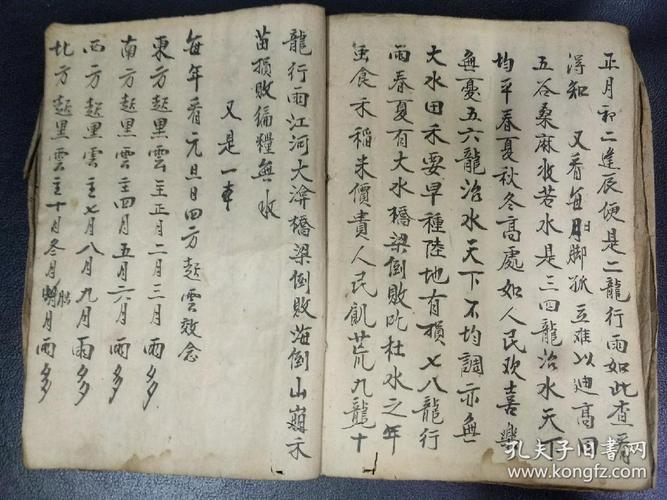 正月初二逢辰便是二龍行雨如此查看
得知 又看每月脚孤 豆难以迪高田
五谷桑麻收若水是三四龍治水天下
均平春夏秋冬高處如人民欢喜樂
無憂五六龍治水天下不均調亦無
大水田禾要早種陸地有損七八龍行
雨春夏有大水橋梁倒敗此杜水之年
虫食禾稻米價貴人民飢荒九龍十
龍行雨江河大渰橋梁倒敗海倒山崩禾
苗損敗偏糧無收
又是一本
每年看元旦日四方起雲效念
東方起黑雲主正月二月三月雨多
南方起黑雲主四月五月六月雨多
西方起黑雲主七月八月九月雨多
北方起黑雲主十月冬月腊月雨多
孔夫子旧书网
www.kongfz.com